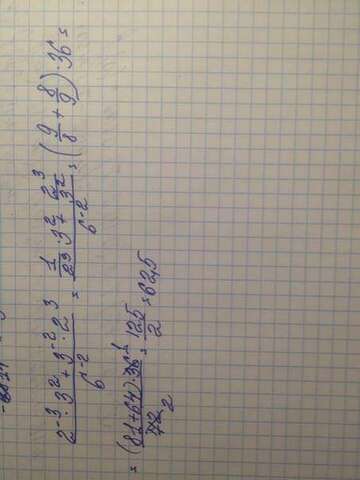 (2⁻³ · 3² + 3⁻² · 2³) / 6⁻² = (1/2³ · 3² + 2³/3²) / 6⁻² = (9/8 + 8/9) · 36 =
= (81+64) · 36¹ / 72 2 = 125/2 = 62,5